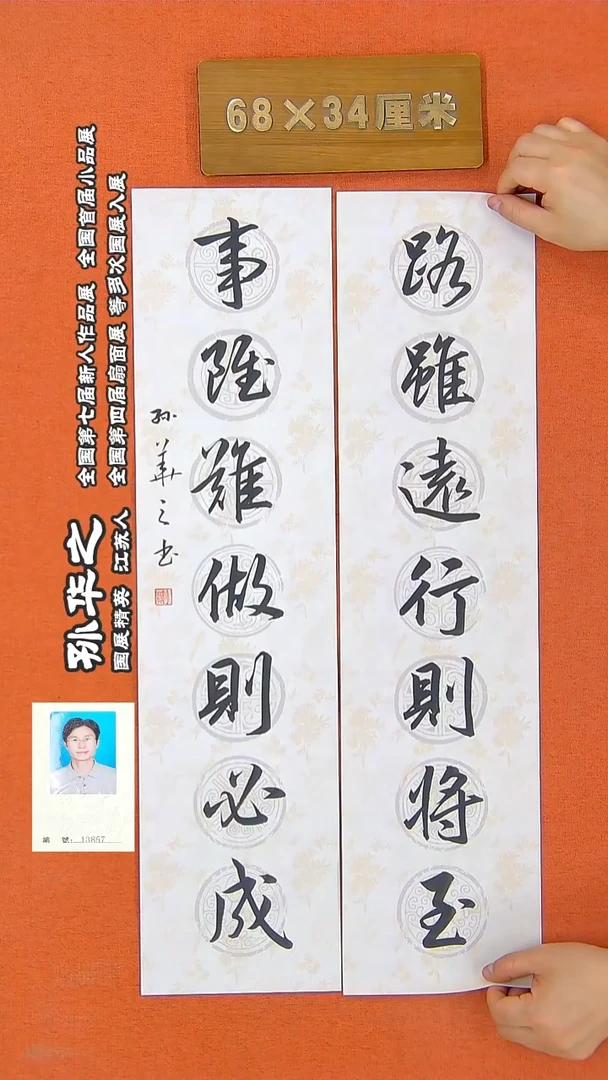 68×34厘米
路雖遠行則将至
事雖難做則必成
孙華之书
孙华之
国展精英 江苏人
全国第七届新人作品展 全国首届小品展
全国第四届扇面展 等多次国展入展
編 號: